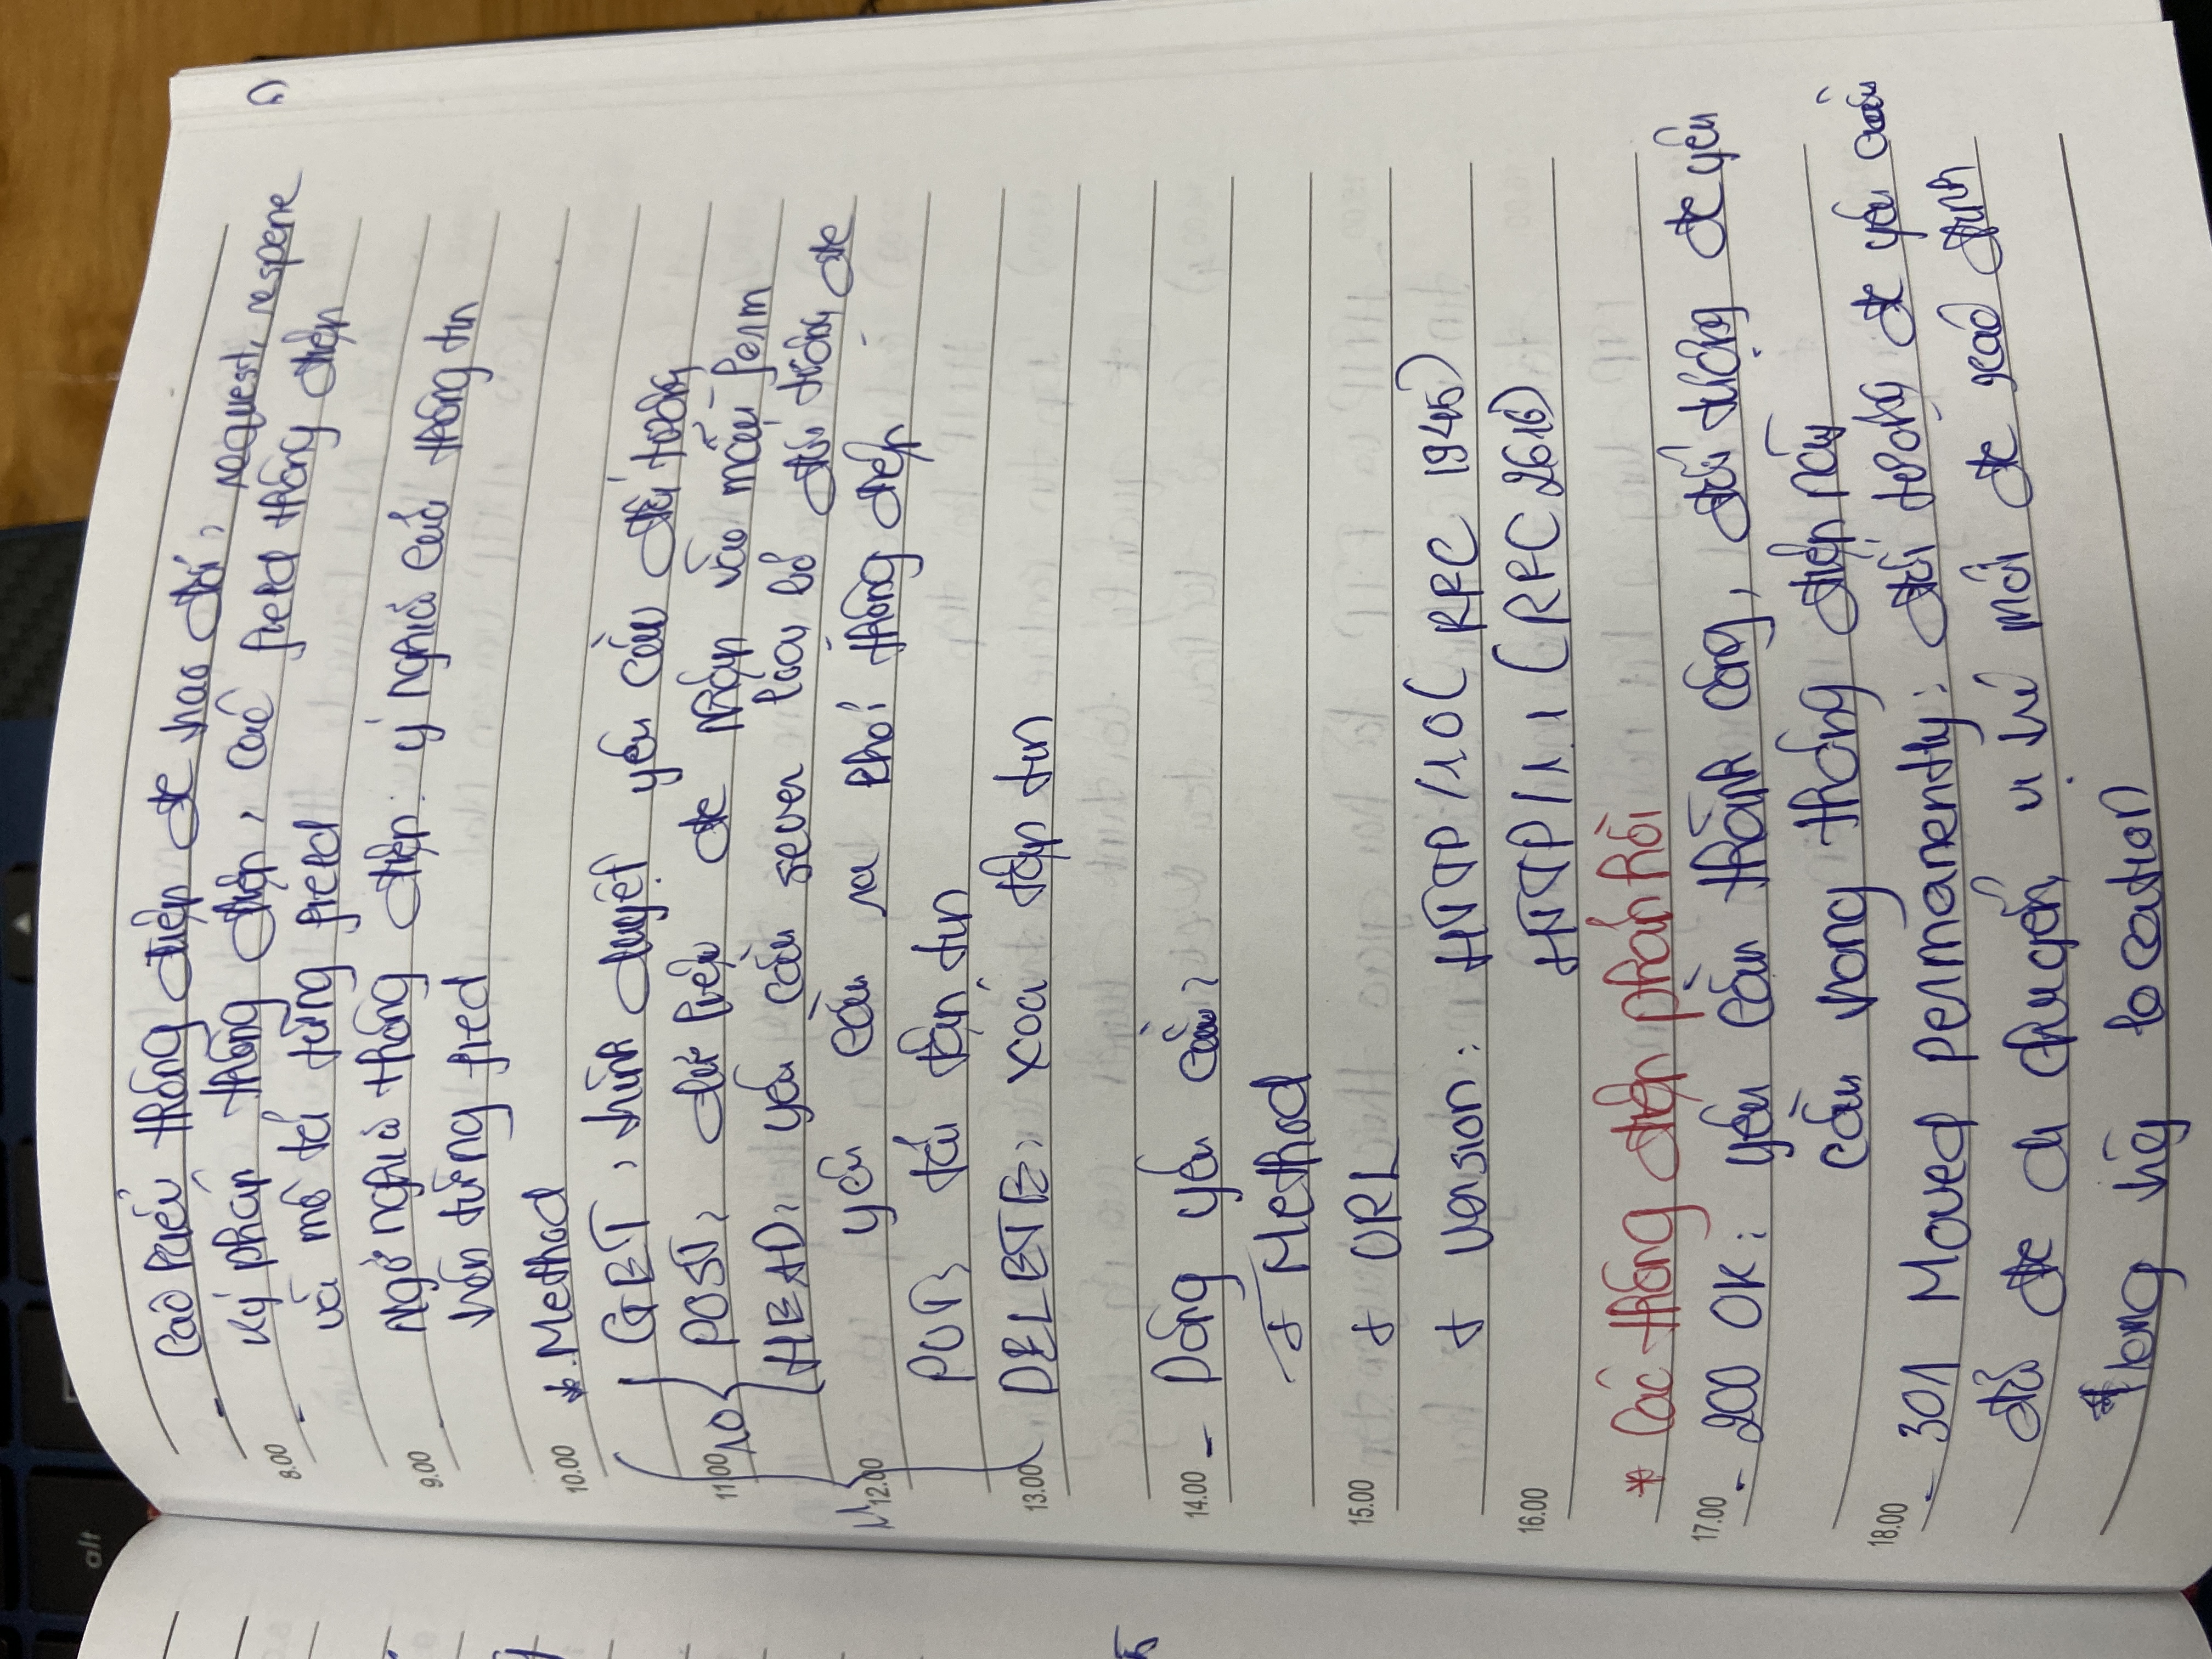 alt
- Các kiểu thông điệp đc trao đổi: request, respone
8.00 - Cú pháp thông điệp: các field thông điệp
và mô tả từng field
9.00 - Ngữ nghĩa thông điệp: ý nghĩa của thông tin
trên từng field
10.00 * Method
GET: trình duyệt yêu cầu đối tượng
11.00 1.0 POST: dữ liệu đc nhập vào mẫu form
HEAD: yêu cầu sever loại bỏ đối tượng đc
12.00 1.1 yêu cầu ra khỏi thông điệp
PUT: tải tập tin
13.00 DELETE: xoá tập tin
14.00 - Dòng yêu cầu:
+ Method
15.00 + URL
+ Version: HTTP/1.0 (RFC 1945)
16.00 HTTP/1.1 (RFC 2616)
* Các thông điệp phản hồi
17.00 - 200 OK: yêu cầu thành công, đối tượng đc yêu
cầu trong thông điệp này
18.00 - 301 Moved permanently: đối tượng đc yêu cầu
đã đc di chuyển, vị trí mới đc xác định
trong trường location